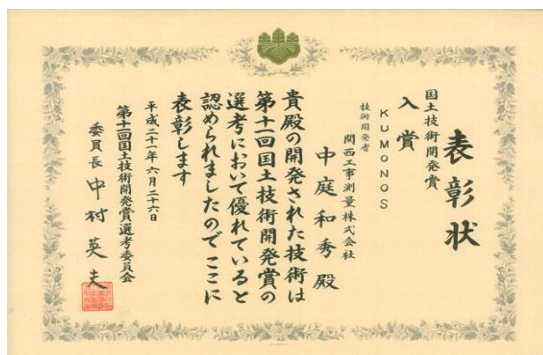 表彰状
国土技術開発賞
入賞
KUMONOS
技術開発者
関西工事測量株式会社
中庭和秀殿
貴殿の開発された技術は
第十一回国土技術開発賞の
選考において優れていると
認められましたのでここに
表彰します
平成二十一年六月二十六日
第十一回国土技術開発賞選考委員会
委員長 中村英夫